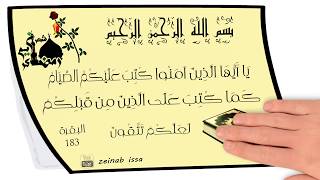 بسم الله الرحمن الرحيم
يا أيها الذين آمنوا كتب عليكم الصيام
كما كتب على الذين من قبلكم
لعلكم تتقون
البقرة
183
zeinab issa